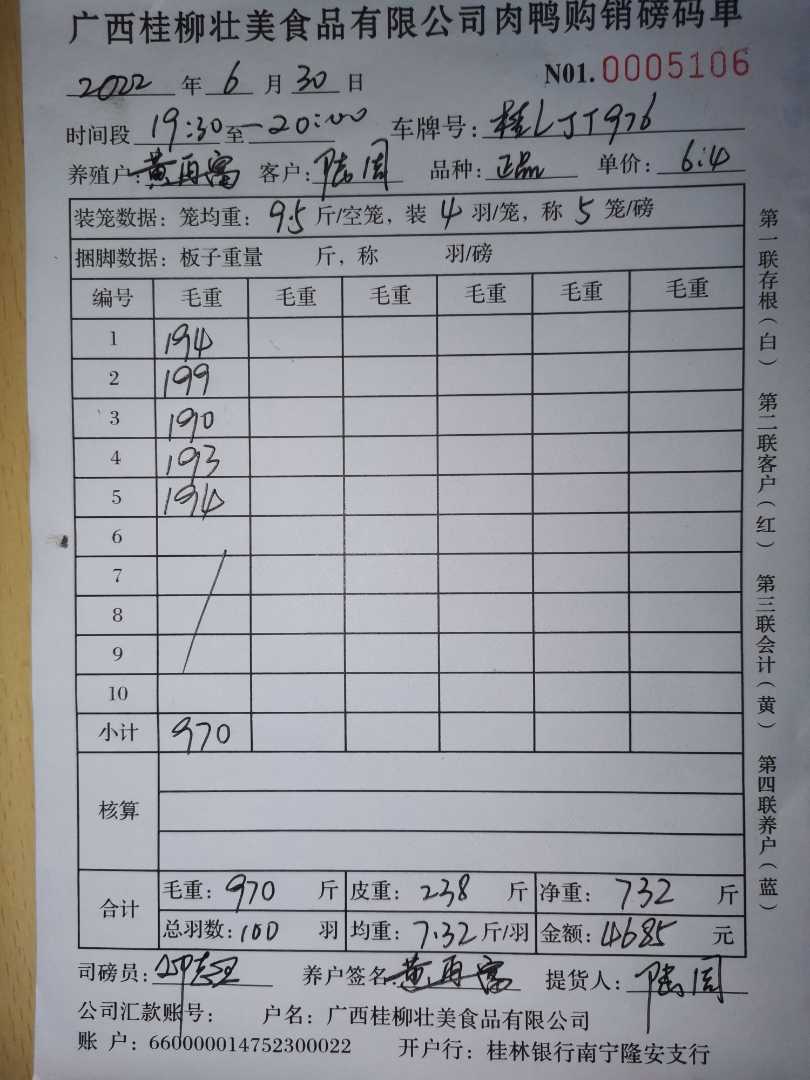 广西桂柳壮美食品有限公司肉鸭购销磅码单
2022 年 6 月 30 日 N01. 0005106
时间段 19:30 至 20:00 车牌号: 桂LJT976
养殖户: 黄再富 客户: 陆周 品种: 正品 单价: 6.4
装笼数据: 笼均重: 9.5 斤/空笼, 装 4 羽/笼, 称 5 笼/磅
捆脚数据: 板子重量 斤, 称 羽/磅
编号 毛重 毛重 毛重 毛重 毛重 毛重
1 194
2 199
3 190
4 193
5 194
6
7
8
9
10
小计 970
核算
合计 毛重: 970 斤 皮重: 238 斤 净重: 732 斤
总羽数: 100 羽 均重: 7.32 斤/羽 金额: 4685 元
司磅员: 养户签名 黄再富 提货人: 陆周
公司汇款账号: 户名: 广西桂柳壮美食品有限公司
账 户: 660000014752300022 开户行: 桂林银行南宁隆安支行
第一联存根(白) 第二联客户(红) 第三联会计(黄) 第四联养户(蓝)